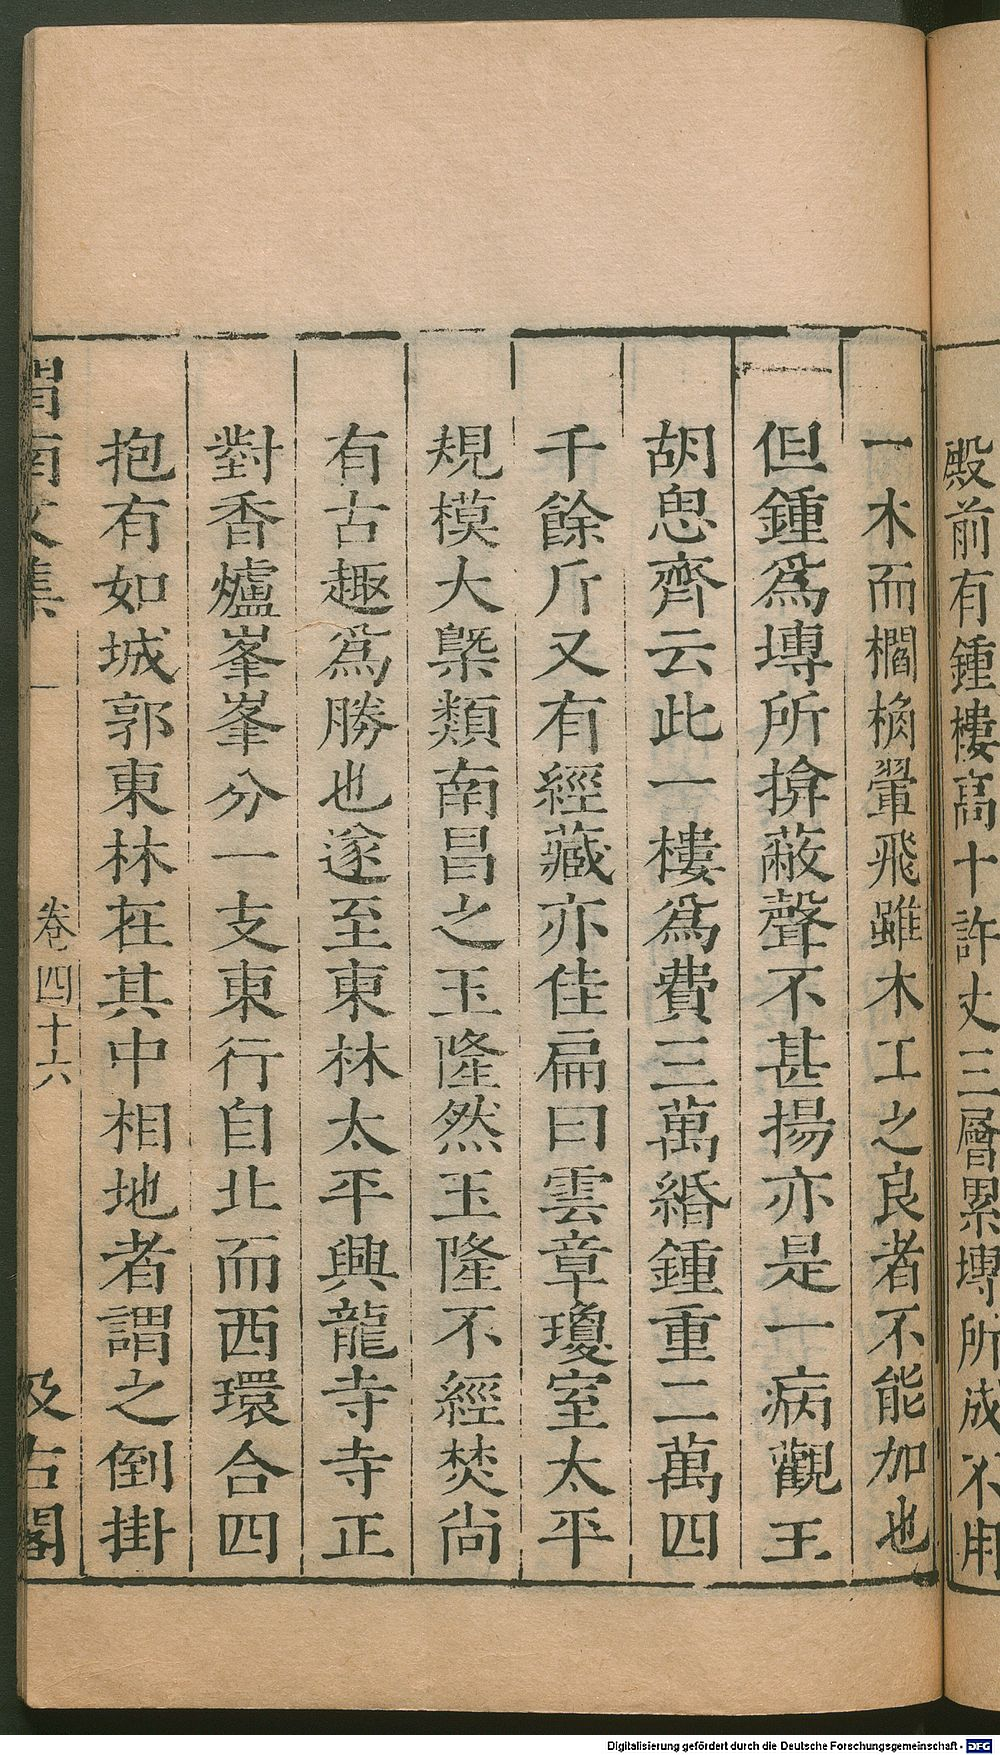 殿前有鍾樓高十許丈三層累塼所成不用
一木而櫚桷翬飛雖木工之良者不能加也
但鍾爲塼所揜蔽聲不甚揚亦是一病觀主
胡思齊云此一樓爲費三萬緡鍾重二萬四
千餘斤又有經藏亦佳扁曰雲章瓊室太平
規模大槩類南昌之玉隆然玉隆不經焚尚
有古趣爲勝也遂至東林太平興龍寺寺正
對香爐峯峯分一支東行自北而西環合四
抱有如城郭東林在其中相地者謂之倒掛
渭南文集 卷四十六 汲古閣
Digitalisierung gefördert durch die Deutsche Forschungsgemeinschaft - DFG